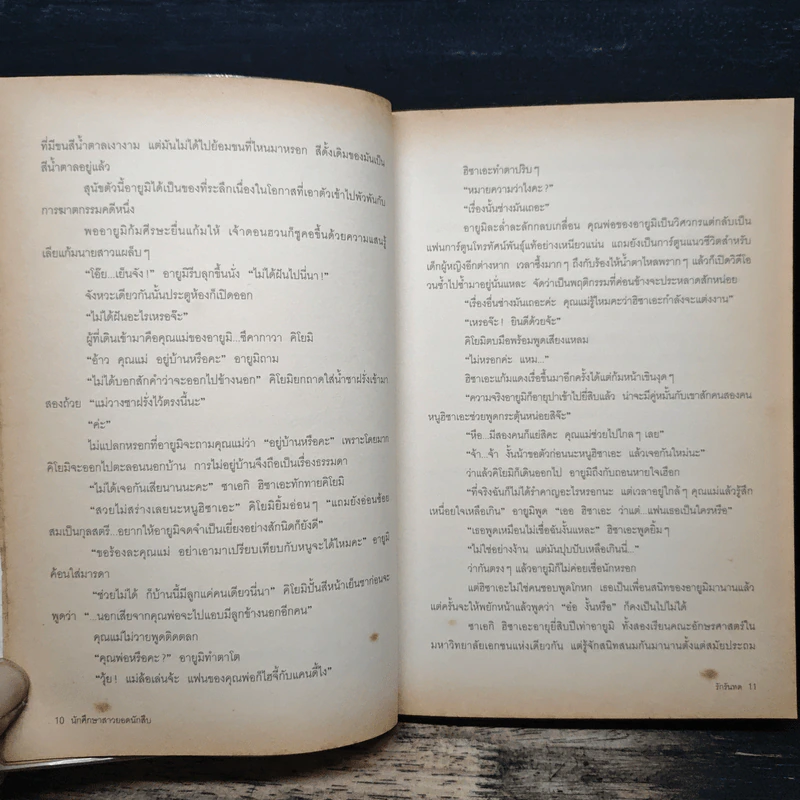 ที่มีขนสีน้ำตาลเงางาม แต่มันไม่ได้ไปย้อมขนที่ไหนมาหรอก สีดั้งเดิมของมันเป็น
สีน้ำตาลอยู่แล้ว
สุนัขตัวนี้อายูมิได้เป็นของที่ระลึกเนื่องในโอกาสที่เอาตัวเข้าไปพัวพันกับ
การฆาตกรรมคดีหนึ่ง
พออายูมิก้มศีรษะยื่นแก้มให้ เจ้าดอนฮวนก็ชูคอขึ้นด้วยความแสนรู้
เลียแก้มนายสาวแผล็บๆ
“โอ๊ย...เย็นจัง!” อายูมิรีบลุกขึ้นนั่ง “ไม่ได้ฝันไปนี่นา!”
จังหวะเดียวกันนั้นประตูห้องก็เปิดออก
“ไม่ได้ฝันอะไรเหรอจ๊ะ”
ผู้ที่เดินเข้ามาคือคุณแม่ของอายูมิ...ซึคากาวา คิโยมิ
“อ้าว คุณแม่ อยู่บ้านหรือคะ” อายูมิถาม
“ไม่ได้บอกสักคำว่าจะออกไปข้างนอก” คิโยมิยกถาดใส่น้ำชาฝรั่งเข้ามา
สองถ้วย “แม่วางชาฝรั่งไว้ตรงนี้นะ”
“ค่ะ”
ไม่แปลกหรอกที่อายูมิจะถามคุณแม่ว่า “อยู่บ้านหรือคะ” เพราะโดยมาก
คิโยมิจะออกไปตะลอนนอกบ้าน การไม่อยู่บ้านจึงถือเป็นเรื่องธรรมดา
“ไม่ได้เจอกันเสียนานนะคะ” ซาเอกิ ฮิซาเอะทักทายคิโยมิ
“สวยไม่สร่างเลยนะหนูฮิซาเอะ” คิโยมิยิ้มอ่อนๆ “แถมยังอ่อนช้อย
สมเป็นกุลสตรี...อยากให้อายูมิจดจำเป็นเยี่ยงอย่างสักนิดก็ยังดี”
“ขอร้องละคุณแม่ อย่าเอามาเปรียบเทียบกับหนูจะได้ไหมคะ” อายูมิ
ค้อนใส่มารดา
“ช่วยไม่ได้ ก็บ้านนี้มีลูกแค่คนเดียวนี่นา” คิโยมิปั้นสีหน้าเย็นชาก่อนจะ
พูดว่า “...นอกเสียจากคุณพ่อจะไปแอบมีลูกข้างนอกอีกคน”
คุณแม่ไม่วายพูดติดตลก
“คุณพ่อหรือคะ?” อายูมิทำตาโต
“วุ้ย! แม่ล้อเล่นจ้ะ แฟนของคุณพ่อก็ไฮจี้กับแคนดี้ไง”
10 นักศึกษาสาวยอดนักสืบ
ฮิซาเอะทำตาปริบๆ
“หมายความว่าไงคะ?”
“เรื่องนั้นช่างมันเถอะ”
อายูมิละล่ำละลักกลบเกลื่อน คุณพ่อของอายูมิเป็นวิศวกรแต่กลับเป็น
แฟนการ์ตูนโทรทัศน์พันธุ์แท้อย่างเหนียวแน่น แถมยังเป็นการ์ตูนแนวชีวิตสำหรับ
เด็กผู้หญิงอีกต่างหาก เวลาซึ้งมากๆ ถึงกับร้องไห้น้ำตาไหลพรากๆ แล้วก็เปิดวีดีโอ
วนซ้ำไปซ้ำมาอยู่นั่นแหละ จัดว่าเป็นพฤติกรรมที่ค่อนข้างจะประหลาดสักหน่อย
“เรื่องอื่นช่างมันเถอะค่ะ คุณแม่รู้ไหมคะว่าฮิซาเอะกำลังจะแต่งงาน”
“เหรอจ๊ะ! ยินดีด้วยจ้ะ”
คิโยมิตบมือพร้อมพูดเสียงแหลม
“ไม่หรอกค่ะ แหม...”
ฮิซาเอะแก้มแดงเรื่อขึ้นมาอีกครั้งได้แต่ก้มหน้าเขินงุดๆ
“ความจริงอายูมิก็อายุปาเข้าไปยี่สิบแล้ว น่าจะมีคู่หมั้นกับเขาสักคนสองคน
หนูฮิซาเอะช่วยพูดกระตุ้นหน่อยสิจ๊ะ”
“หือ...มีสองคนก็แย่สิคะ คุณแม่ช่วยไปไกลๆ เลย”
“จ้า...จ้า งั้นน้าขอตัวก่อนนะหนูฮิซาเอะ แล้วเจอกันใหม่นะ”
ว่าแล้วคิโยมิก็เดินออกไป อายูมิถึงกับถอนหายใจเฮือก
“ที่จริงฉันก็ไม่ได้รำคาญอะไรหรอกนะ แต่เวลาอยู่ใกล้ๆ คุณแม่แล้วรู้สึก
เหนื่อยใจเหลือเกิน” อายูมิพูด “เธอ ฮิซาเอะ ว่าแต่...แฟนเธอเป็นใครหรือ”
“เธอพูดเหมือนไม่เชื่อฉันงั้นแหละ” ฮิซาเอะพูดยิ้มๆ
“ไม่ใช่อย่างงั้น แต่มันปุบปับเหลือเกินนี่...”
ว่ากันตรงๆ แล้วอายูมิก็ไม่ค่อยเชื่อนักหรอก
แต่ฮิซาเอะไม่ใช่คนชอบพูดโกหก เธอเป็นเพื่อนสนิทของอายูมิมานานแล้ว
แต่ครั้นจะให้พยักหน้าแล้วพูดว่า “อ๋อ งั้นหรือ” ก็คงเป็นไปไม่ได้
ซาเอกิ ฮิซาเอะอายุยี่สิบปีเท่าอายูมิ ทั้งสองเรียนคณะอักษรศาสตร์ใน
มหาวิทยาลัยเอกชนแห่งเดียวกัน แต่รู้จักสนิทสนมกันมานานตั้งแต่สมัยประถม
รักรันทด 11